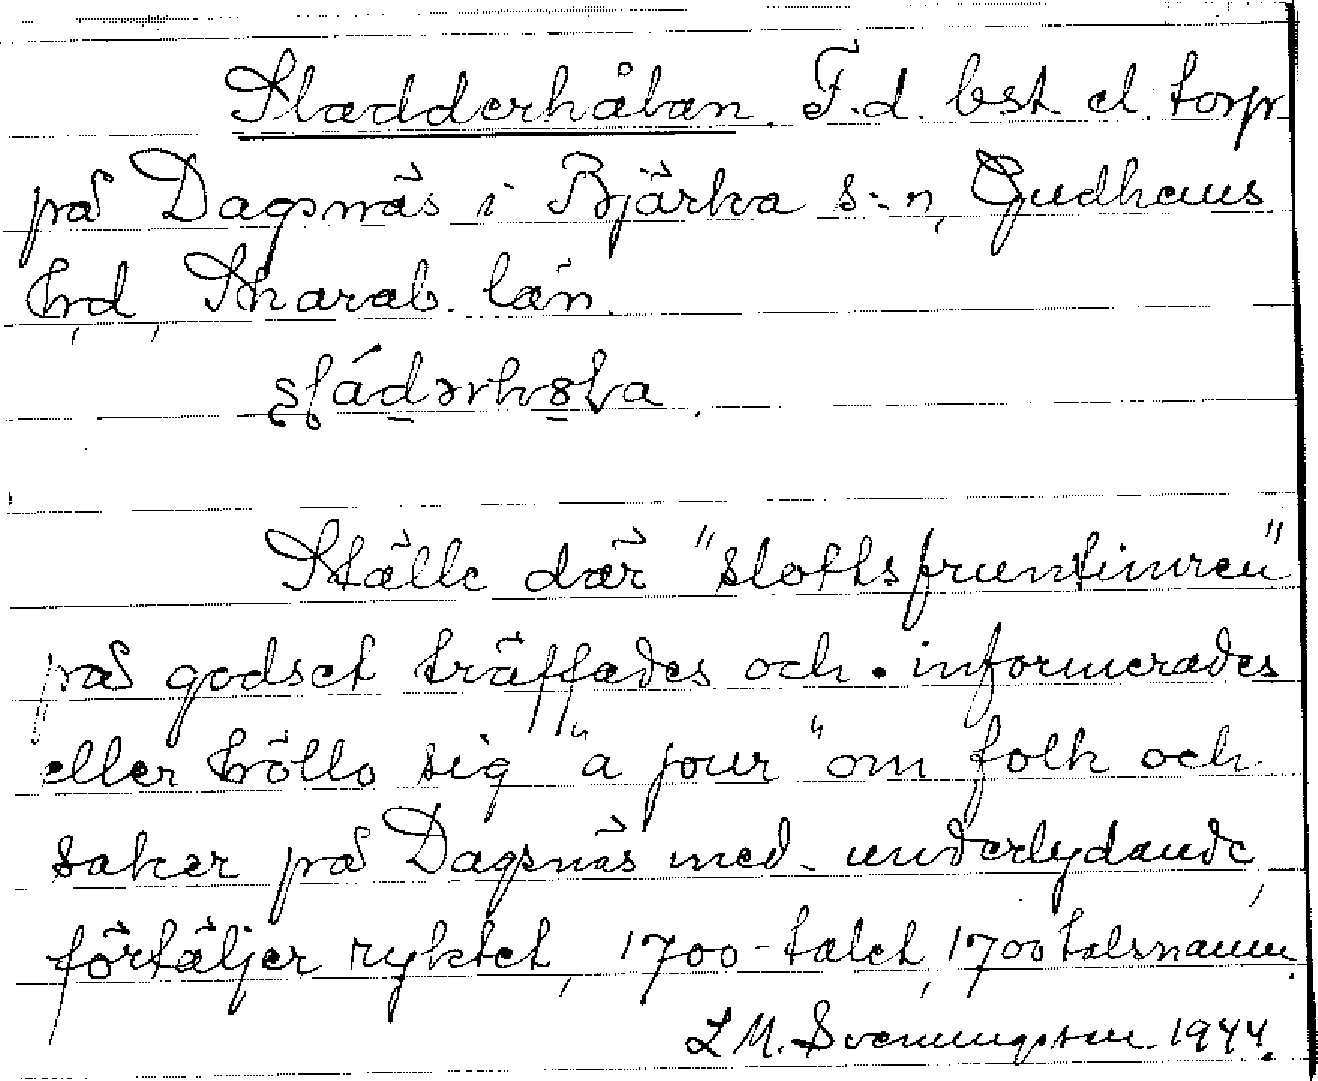 Sladderhålan. F.d. bst. el. torp
på Dagsnäs i Bjärka s:n, Gudhems
hrd, Skarab. län.
Ställe där "slottsfruntimren"
på godset träffades och informerades
eller höllo sig "a jour" om folk och
saker på Dagsnäs med underlydande,
förtäljer ryktet, 1700-talet, 1700talsnamn.
L M. Svenungsson 1944.